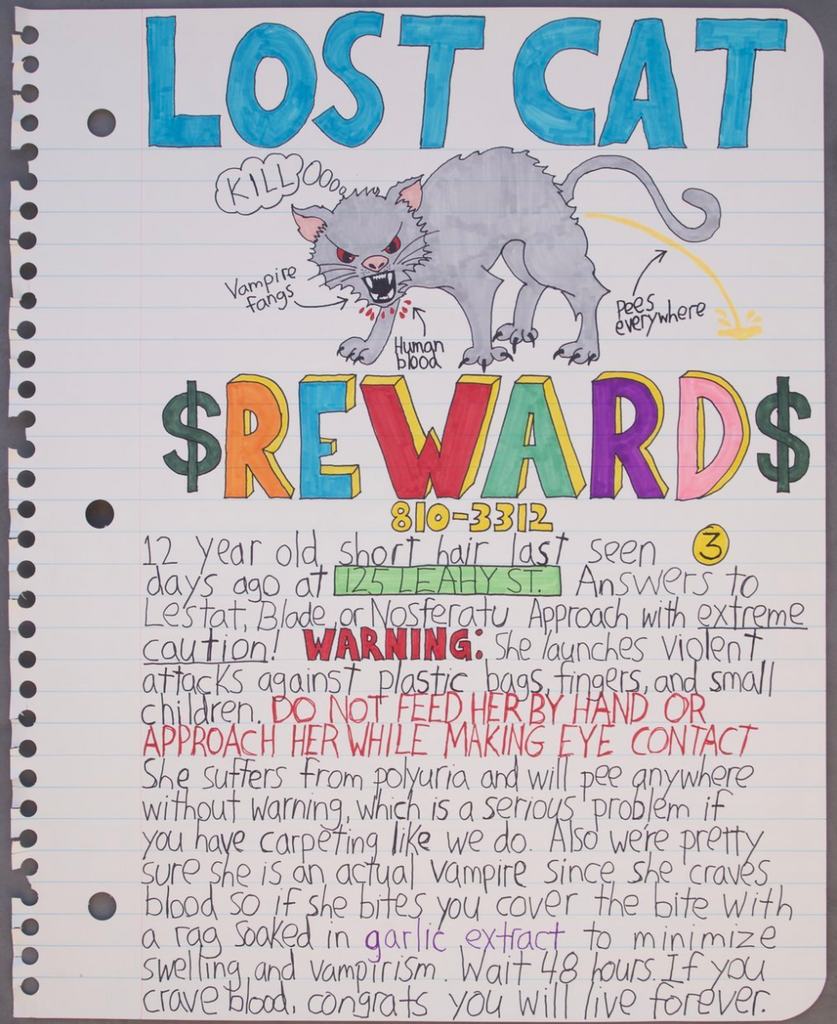 LOST CAT
KILL
Vampire
fangs
Human
blood
pees
everywhere
$REWARD$
810-3312
12 year old short hair last seen 3
days ago at 125 LEAHY ST. Answers to
Lestat, Blade, or Nosferatu Approach with extreme
caution! WARNING: She launches violent
attacks against plastic bags, fingers, and small
children. DO NOT FEED HER BY HAND OR
APPROACH HER WHILE MAKING EYE CONTACT
She suffers from polyuria and will pee anywhere
without warning, which is a serious problem if
you have carpeting like we do. Also we're pretty
sure she is an actual vampire since she craves
blood so if she bites you cover the bite with
a rag soaked in garlic extract to minimize
swelling and vampirism. Wait 48 hours. If you
crave blood, congrats you will live forever.